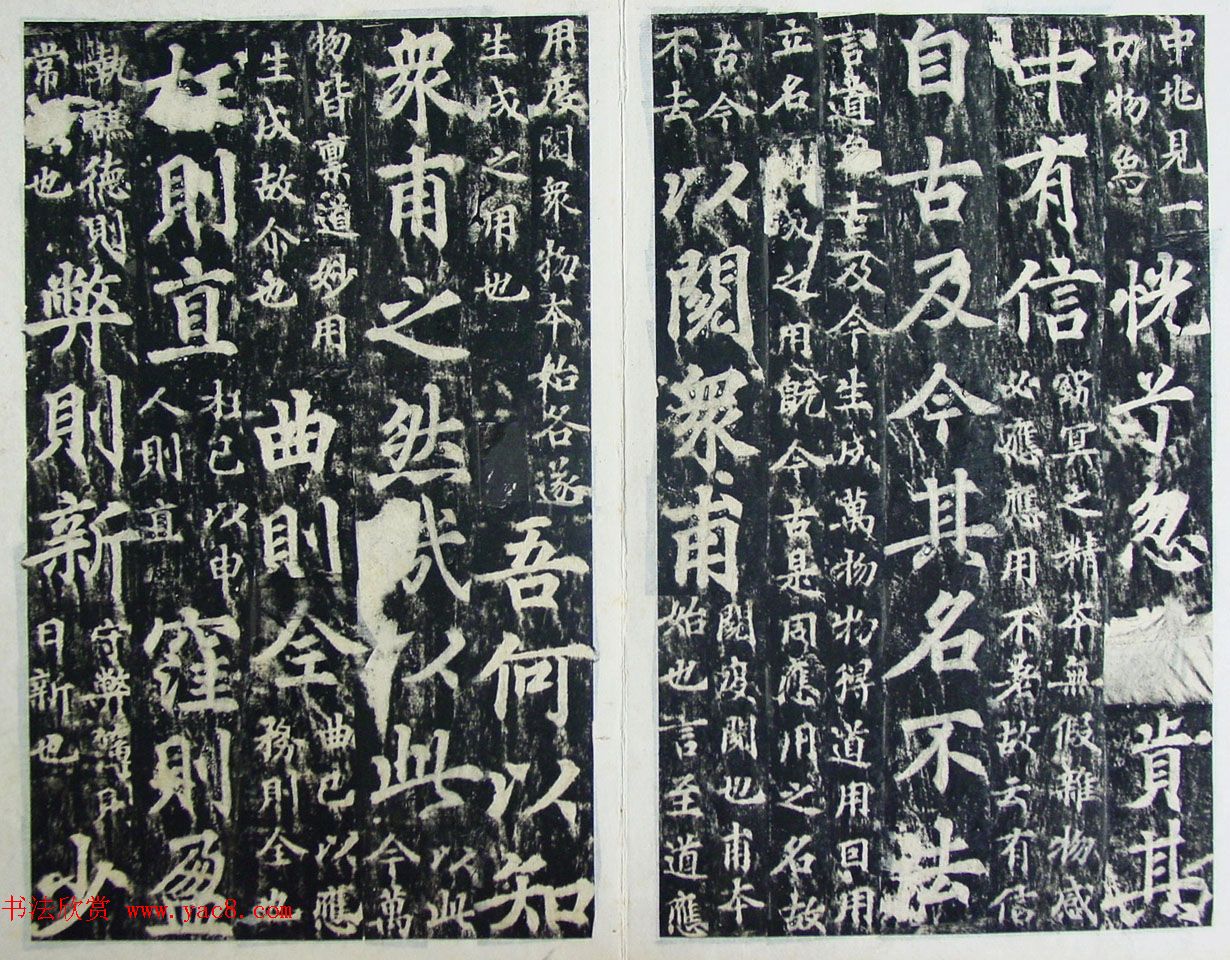 中兆見一
切物焉
恍兮忽
肯其
中有信
窈冥之精本無假雜物感
必應應用不差故云有信
自古及今其名不法
言道自古及今生成萬物物得道用因用
立名之用既今古是同應用之名故
古今
不去
以閱衆甫
閱度閱也甫本
始也言至道應
用度閱衆物本始各遂
生成之用也
吾何以知
衆甫之然哉以此
以此
今萬
物皆稟道妙用
生成故尒也
曲則全
曲己以應
務則全也
枉則直
枉己以申
人則直
窪則盈
執謙德則
常也
弊則新
守弊薄
日新也
少
书法欣赏 www.yac8.com